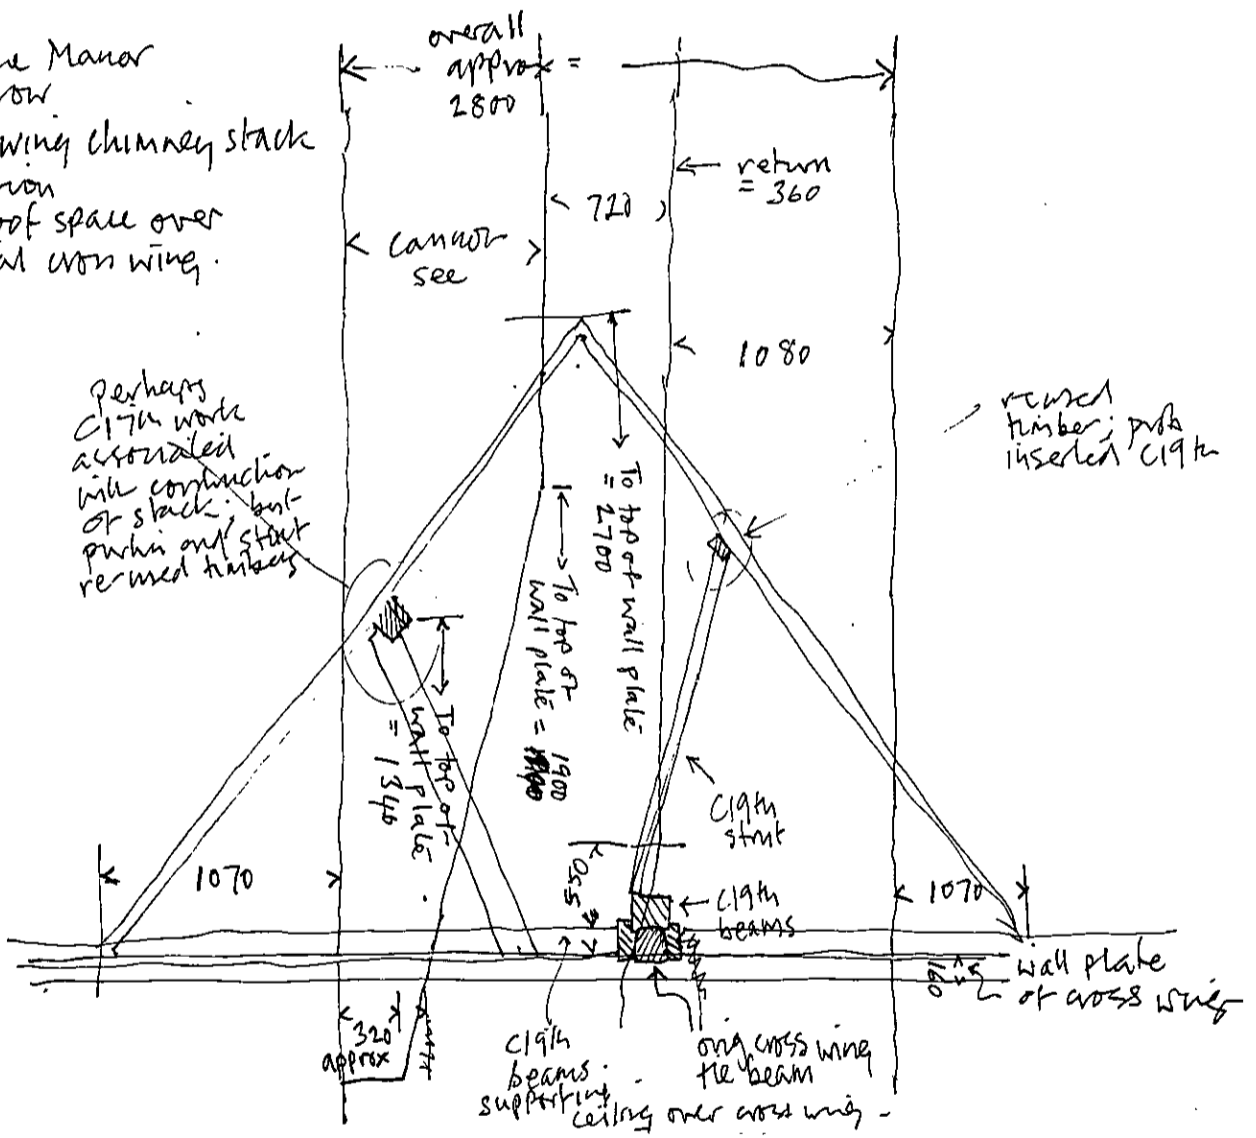 e Manor
ow
wing chimney stack
oof space over
al cross wing.
overall
approx =
2800
return
= 360
< 720 >
< cannot >
see
1080
perhaps
C17th work
associated
with construction
of stack; but
purlin and strut
re-used timbers.
reused
timber; prob
inserted C19th
To top of wall plate
= 2700
To top of
wall plate = 1900
To top of
wall plate
= 1340
C19th
strut
1070
550
C19th
beams
1070
wall plate
of cross wing
160
320
approx
C19th
beams
supporting
ceiling over cross wing -
orig cross wing
tie beam